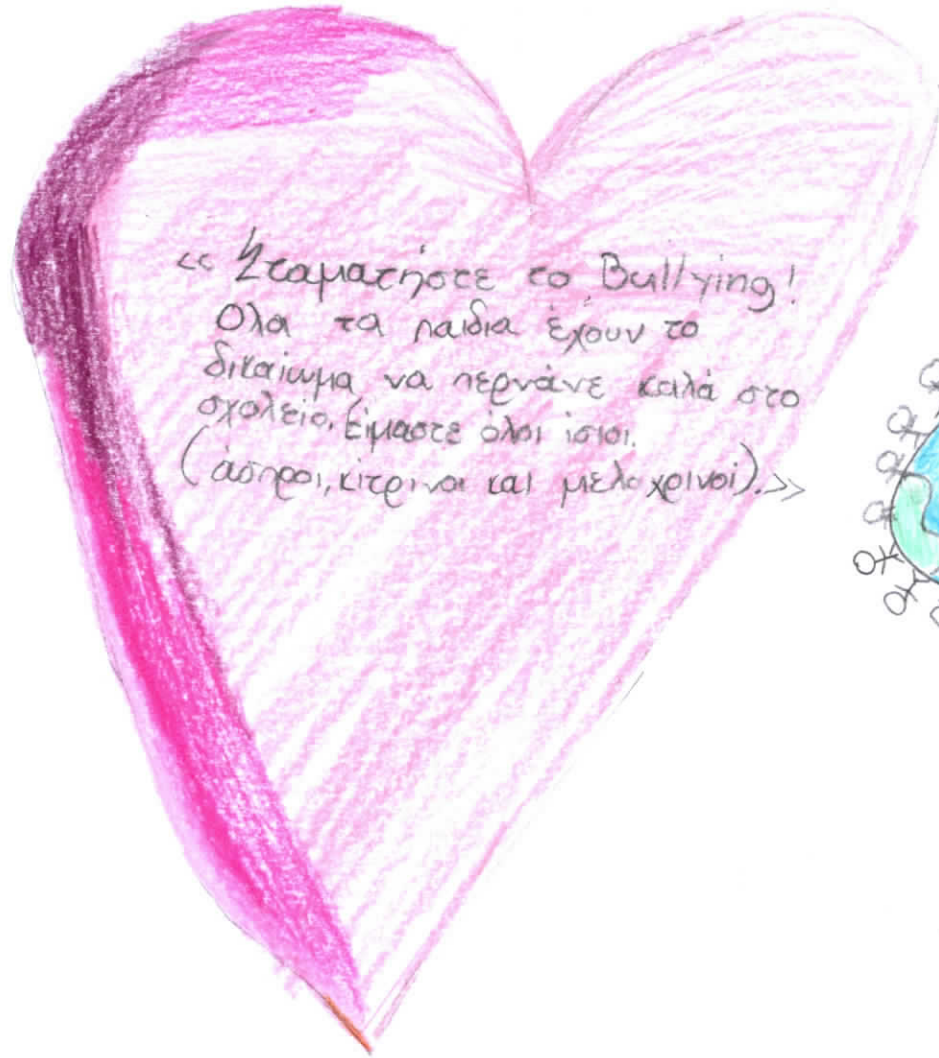 << Σταματήστε το Bullying!
Ολα τα παιδια έχουν το
δικαίωμα να περνάνε καλά στο
σχολείο. Είμαστε όλοι ίσιοι.
(άσπροι, κίτρινοι και μελαχρινοί).>>